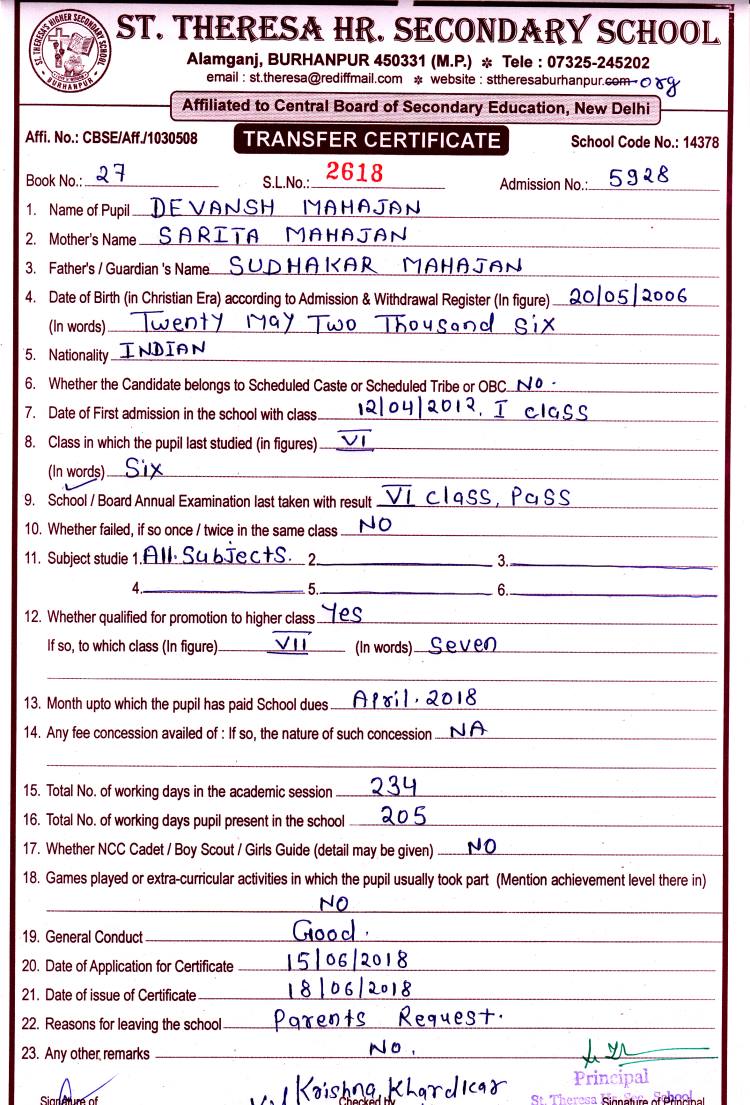 ST. THERESA'S HIGHER SECONDARY SCHOOL
BURHANPUR
ST. THERESA HR. SECONDARY SCHOOL
Alamganj, BURHANPUR 450331 (M.P.) ✻ Tele : 07325-245202
email : st.theresa@rediffmail.com ✻ website : sttheresaburhanpur.com org
Affiliated to Central Board of Secondary Education, New Delhi
Affi. No.: CBSE/Aff./1030508 TRANSFER CERTIFICATE School Code No.: 14378
Book No.: 27 S.L.No.: 2618 Admission No.: 5928
1. Name of Pupil DEVANSH MAHAJAN
2. Mother's Name SARITA MAHAJAN
3. Father's / Guardian 's Name SUDHAKAR MAHAJAN
4. Date of Birth (in Christian Era) according to Admission & Withdrawal Register (In figure) 20/05/2006
(In words) Twenty May Two Thousand Six
5. Nationality INDIAN
6. Whether the Candidate belongs to Scheduled Caste or Scheduled Tribe or OBC No.
7. Date of First admission in the school with class 12/04/2012, I class
8. Class in which the pupil last studied (in figures) VI
(In words) Six
9. School / Board Annual Examination last taken with result VI class, Pass
10. Whether failed, if so once / twice in the same class NO
11. Subject studie 1. All Subjects. 2. 3.
4. 5. 6.
12. Whether qualified for promotion to higher class Yes
If so, to which class (In figure) VII (In words) Seven
13. Month upto which the pupil has paid School dues April. 2018
14. Any fee concession availed of : If so, the nature of such concession NA
15. Total No. of working days in the academic session 234
16. Total No. of working days pupil present in the school 205
17. Whether NCC Cadet / Boy Scout / Girls Guide (detail may be given) NO
18. Games played or extra-curricular activities in which the pupil usually took part (Mention achievement level there in)
NO
19. General Conduct Good.
20. Date of Application for Certificate 15/06/2018
21. Date of issue of Certificate 18/06/2018
22. Reasons for leaving the school Parents Request.
23. Any other remarks No.
Principal
Krishna Khardikar
Signature of Checked by St. Theresa Hr. Sec. School Signature of Principal